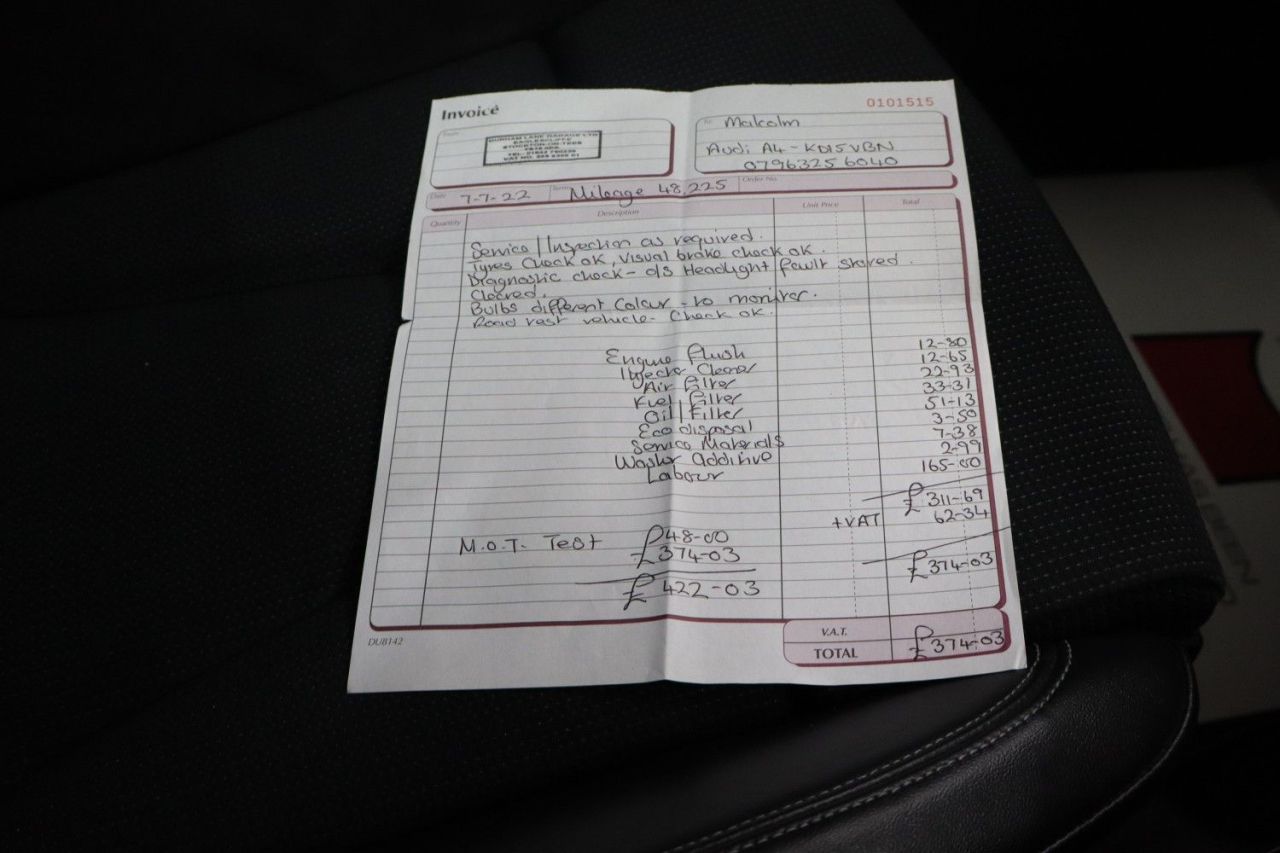 Invoice
0101515
From
DURHAM LANE GARAGE LTD
EAGLESCLIFFE
STOCKTON-ON-TEES
To
Malcolm
Audi A4 - KD15VBN
07963256040
Date 7-7-22
Terms Mileage 48,225
Order No.
Quantity Description Unit Price Total
Service / Inspection as required.
Tyres Check ok, Visual brake check ok.
Diagnostic check - o/s Headlight fault stored.
Cleared.
Bulbs different Colour - to monitor.
Road test vehicle - Check ok.
Engine flush 12-80
Injector Cleaner 12-65
Air filter 22-93
Fuel filter 33-31
Oil / Filter 51-13
Eco disposal 3-50
Service Materials 7-38
Washer additive 2-99
Labour 165-00
£311-69
+VAT 62-34
M.O.T. Test £48-00
£374-03
£374-03
£422-03
DU8142
V.A.T.
TOTAL £374-03